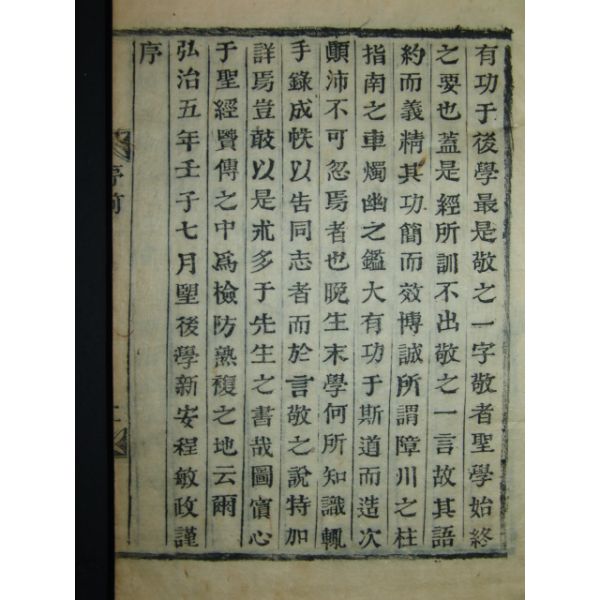 有功于後學最是敬之一字敬者聖學始終
之要也蓋是經所訓不出敬之一言故其語
約而義精其功簡而效博誠所謂障川之柱
指南之車燭幽之鑑大有功于斯道而造次
顚沛不可忽焉者也晩生末學何所知識輒
手錄成帙以告同志者而於言敬之說特加
詳焉豈敢以是求多于先生之書哉圖寘心
于聖經賢傳之中爲檢防熟複之地云爾
弘治五年壬子七月朢後學新安程敏政謹
序
序前
二